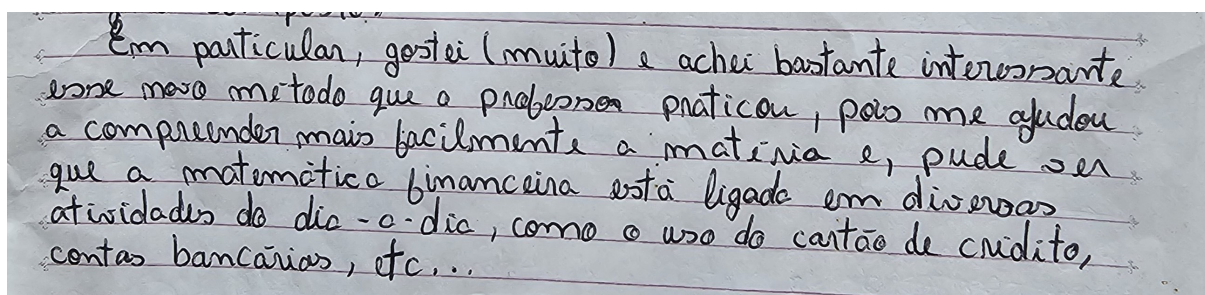 Em particular, gostei (muito) e achei bastante interessante
esse novo metodo que o professor praticou, pois me ajudou
a compreender mais facilmente a matéria e, pude ser
que a matemática financeira está ligada em diversas
atividades do dia-a-dia, como o uso do cartão de crédito,
contas bancárias, etc...